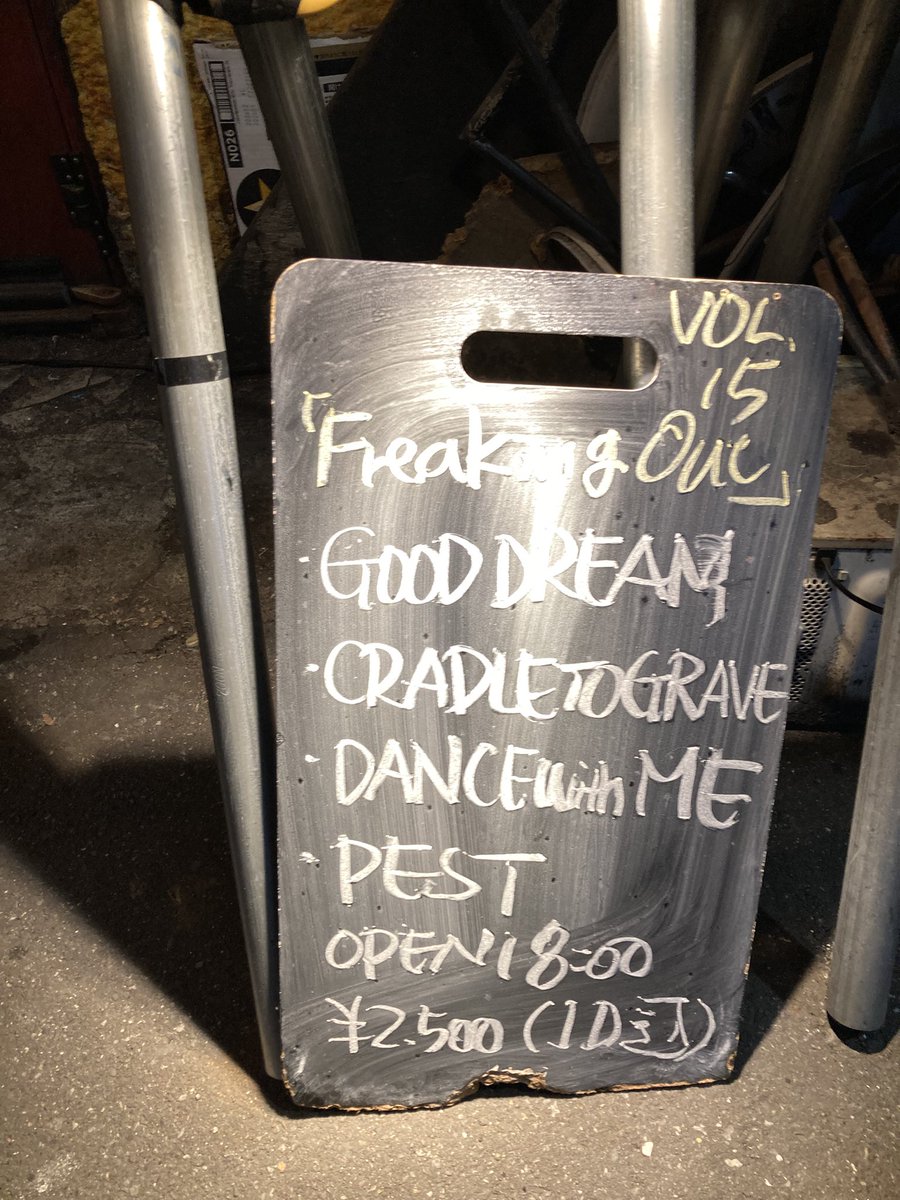 N026
VOL.
15
「Freaking Out」
・GOOD DREAM
・CRADLE TO GRAVE
・DANCE with ME
・PEST
OPEN 18:00
¥2.500 (1D込)